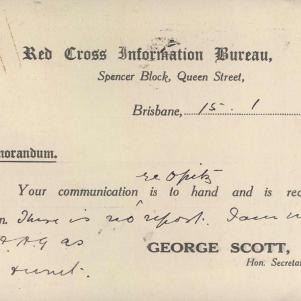 Red Cross Information Bureau,
Spencer Block, Queen Street,
Brisbane, 15. 1
morandum.
re Opitz
Your communication is to hand and is rec
There is no report. I am
A.A.G as
GEORGE SCOTT,
Hon. Secretar